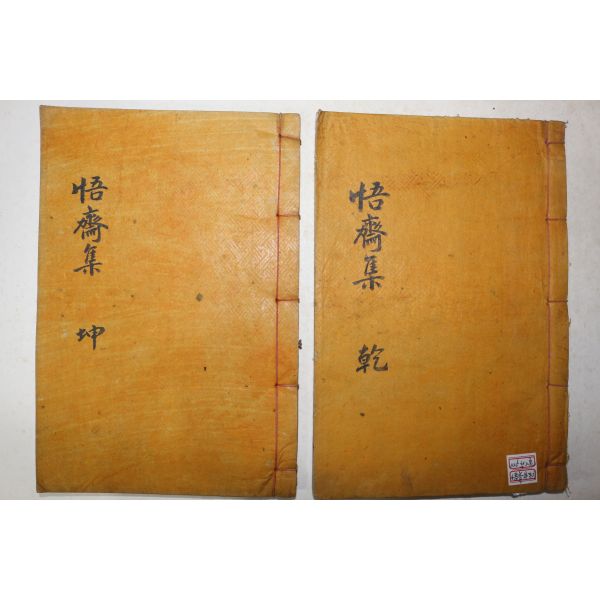 悟齋集
乾
悟齋集
坤